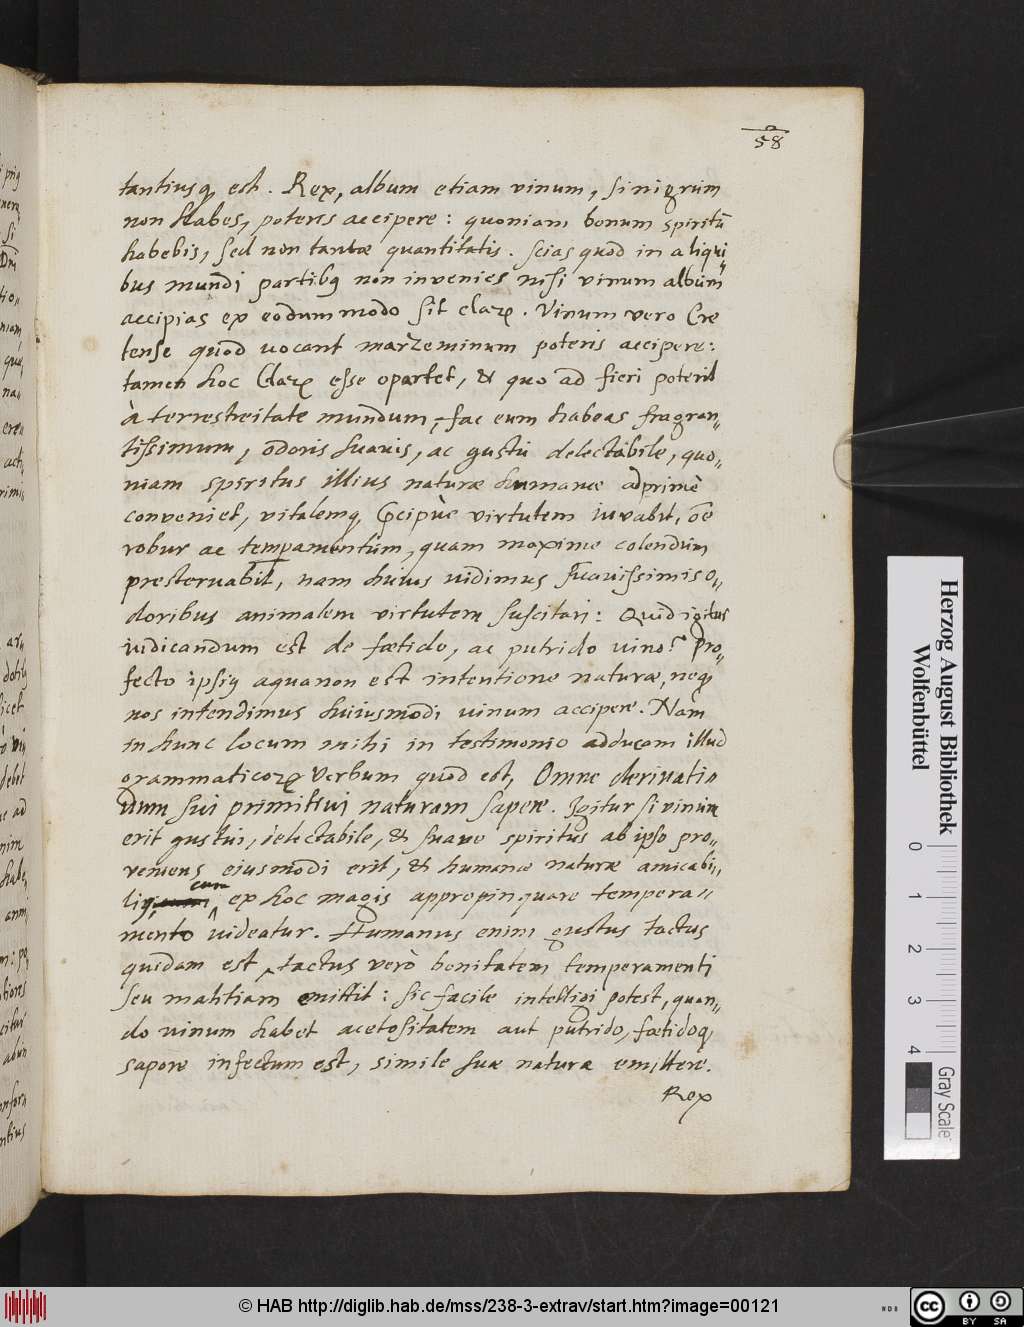 58
tantiusq, est. Rex, album etiam vinum, si nigrum
non habes, poteris accipere: quoniam bonum spiritū
habebis, sed non tantæ quantitatis. Scias quod in aliqui
bus mundi partibq non invenies nisi vinum album,,
accipias ex eodum modo sit claꝝ. Vinum vero Cre
tense quod vocant marzeminum poteris accipere:
tamen hoc Claꝝ esse oportet, & quo ad fieri poterit
à terrestreitate mundum, fac eum habeas fragran,,
tissimum, odoris suavis, ac gustu delectabile, quo,,
niam spiritus illius naturæ humanæ adprimè
conveniet, vitalemq, p̄cipùe virtutem iuvabit, ōe
robur ac temperamentum, quam maxime colendum
preservabit, nam huius vidimus suavissimis o,,
doribus animalem virtutem suscitari: Quid igitur
iudicandum est de fætido, ac putrido vino? Pro,,
fecto ipsiq aqua non est intentione naturæ, neq,
nos intendimus huiusmodi vinum accipere. Nam
in hunc locum mihi in testimonio adducam illud
grammaticoꝝ Verbum quod est, Omne derivati
uum sui primitivi naturam sapere. Igitur si vinum
erit gustui, delectabile, & suave spiritus ab ipso pro,,
veniens eiusmodi erit, & humanæ naturæ amicabi,,
liq, cum ex hoc magis appropinquare tempera,,
mento videatur. Humanus enim gustus tactus
quidam est, tactus verò bonitatem temperamenti
seu malitiam emittit: sic facile intelligi potest, quan,,
do vinum habet acetositatem aut putrido, fætidoq,
sapore infectum est, simile suæ naturæ emittere.
Rex
Herzog August Bibliothek
Wolfenbüttel
0 1 2 3 4
Gray Scale
© HAB http://diglib.hab.de/mss/238-3-extrav/start.htm?image=00121
cc BY SA